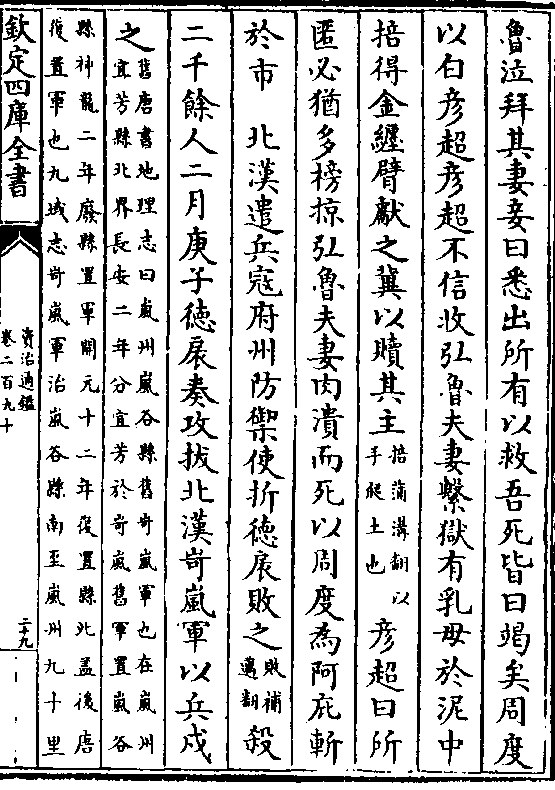 魯泣拜其妻妾曰悉出所有以救吾死皆曰竭矣周度
以白彦超彦超不信收弘魯夫妻繫獄有乳母於泥中
掊得金纏臂獻之冀以贖其主掊蒲溝翻以手爬土也彦超曰所
匿必猶多榜掠弘魯夫妻肉潰而死以周度為阿庇斬
於市 北漢遣兵寇府州防禦使折徳扆敗之敗補邁翻殺
二千餘人二月庚子徳扆奏攻拔北漢岢嵐軍以兵戍
之舊唐書地理志曰嵐州嵐谷縣舊岢嵐軍也在嵐州宜芳縣北界長安二年分宜芳於岢嵐舊軍置嵐谷
縣神龍二年廢縣置軍開元十二年復置縣此盖後唐
復置軍也九域志岢嵐軍治嵐谷縣南至嵐州九十里
欽定四庫全書
資治通鑑
卷二百九十
二十九